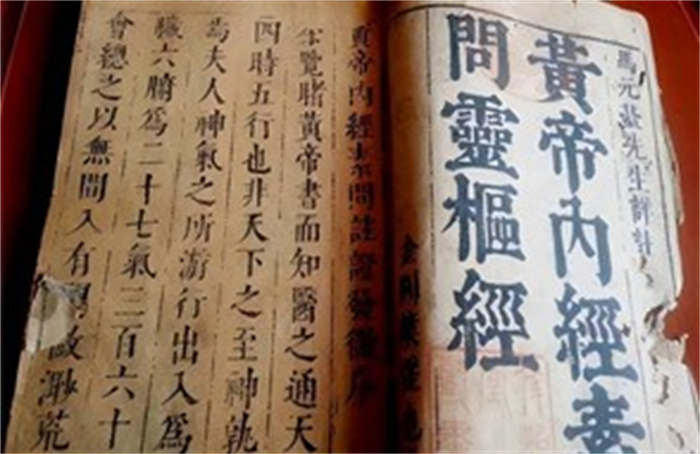 馬元臺先生詳註
黃帝內經素
問靈樞經
黃帝內經素問註證發微序
余覽睹黃帝書而知醫之通天
四時五行也非天下之至神孰
為夫人神氣之所游行出入為
臟六腑為二十七氣三百六十
會總之以無間入有
渺荒